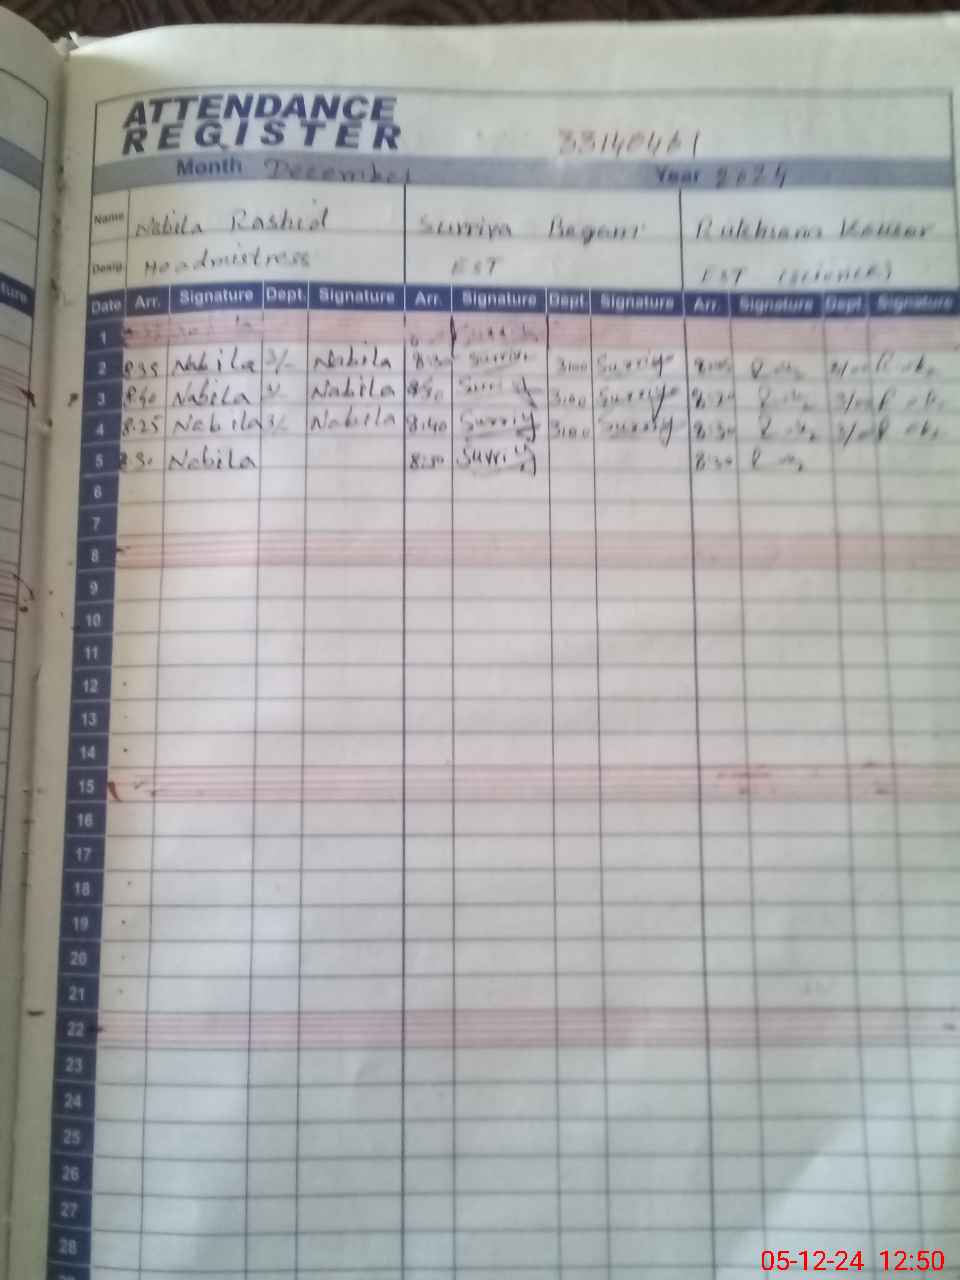 ATTENDANCE
REGISTER
33140461
Month December Year 2024
Name Nabila Rashid Surriya Begam Rukhsana Kousar
Desig. Headmistress EST EST (science)
Date Arr. Signature Dept. Signature Arr. Signature Dept. Signature Arr. Signature Dept. Signature
1
2 8:35 Nabila 3/- Nabila 8:30 Surriya 3:00 Surriya
3 8:40 Nabila 3/- Nabila 8:30 Surriya 3:00 Surriya
4 8:25 Nabila 3/- Nabila 8:40 Surriya 3:00 Surriya 8:30 3/00
5 8:30 Nabila 8:30 Surriya 8:30
6
7
8
9
10
11
12
13
14
15
16
17
18
19
20
21
22
23
24
25
26
27
28
05-12-24 12:50